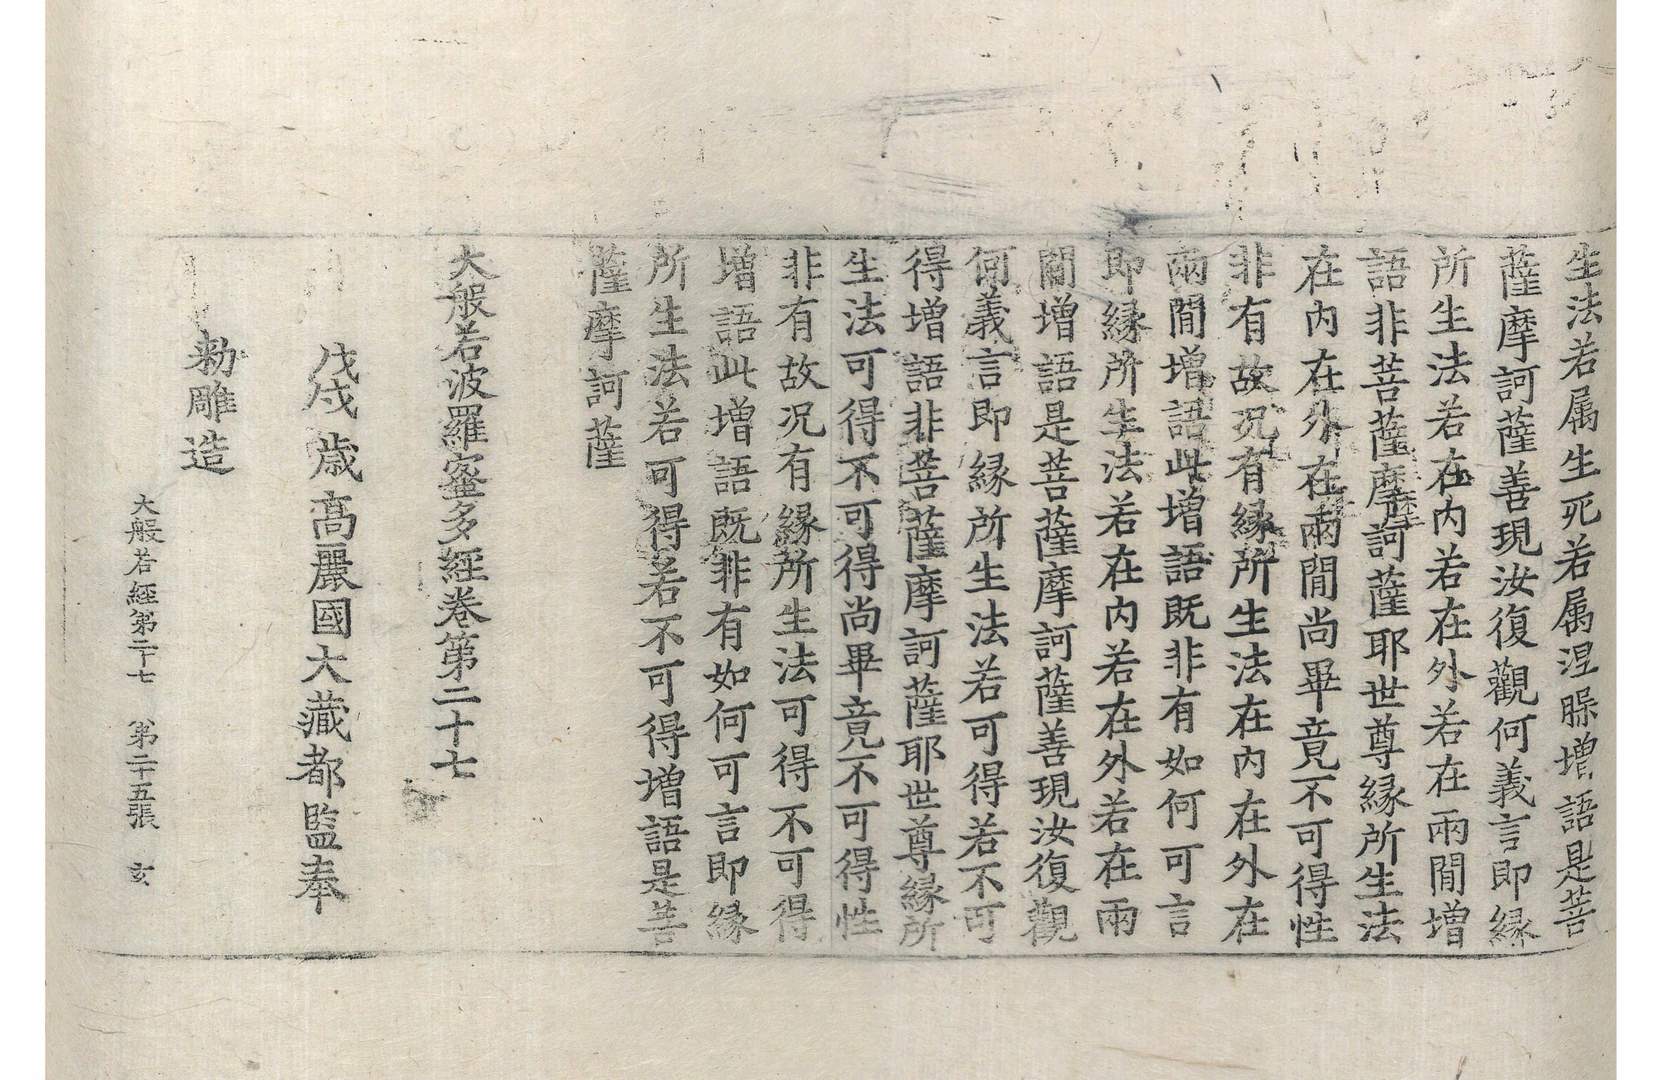 生法若属生死若属涅槃增語是菩
薩摩訶薩善現汝復觀何義言即縁
所生法若在內若在外若在兩閒增
語非菩薩摩訶薩耶世尊縁所生法
在內在外在兩閒尚畢竟不可得性
非有故况有縁所生法在內在外在
兩閒增語此增語既非有如何可言
即縁所生法若在內若在外若在兩
閒增語是菩薩摩訶薩善現汝復觀
何義言即縁所生法若可得若不可
得增語非菩薩摩訶薩耶世尊縁所
生法可得不可得尚畢竟不可得性
非有故况有縁所生法可得不可得
增語此增語既非有如何可言即縁
所生法若可得若不可得增語是菩
薩摩訶薩
大般若波羅蜜多經卷第二十七
戊戌歳高麗國大藏都監奉
勑雕造
大般若經第二十七 第二十五張 玄